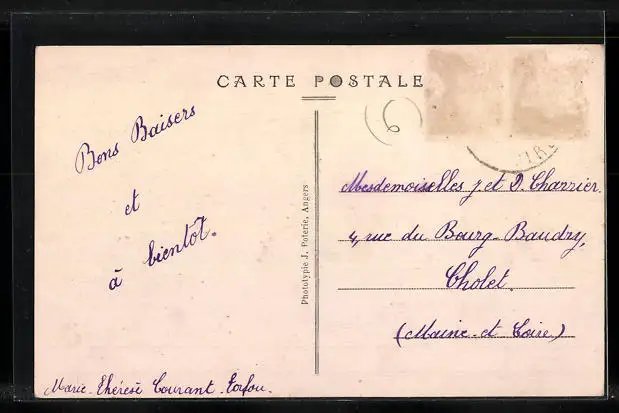 CARTE POSTALE
6
Bons Baisers
et
à bientôt.
Marie-Thérèse Courant. Torfou.
Phototypie J. Poterie, Angers
Mesdemoiselles J. et D. Charrier
4, rue du Bourg-Baudry,
Cholet.
(Maine-et-Loire)